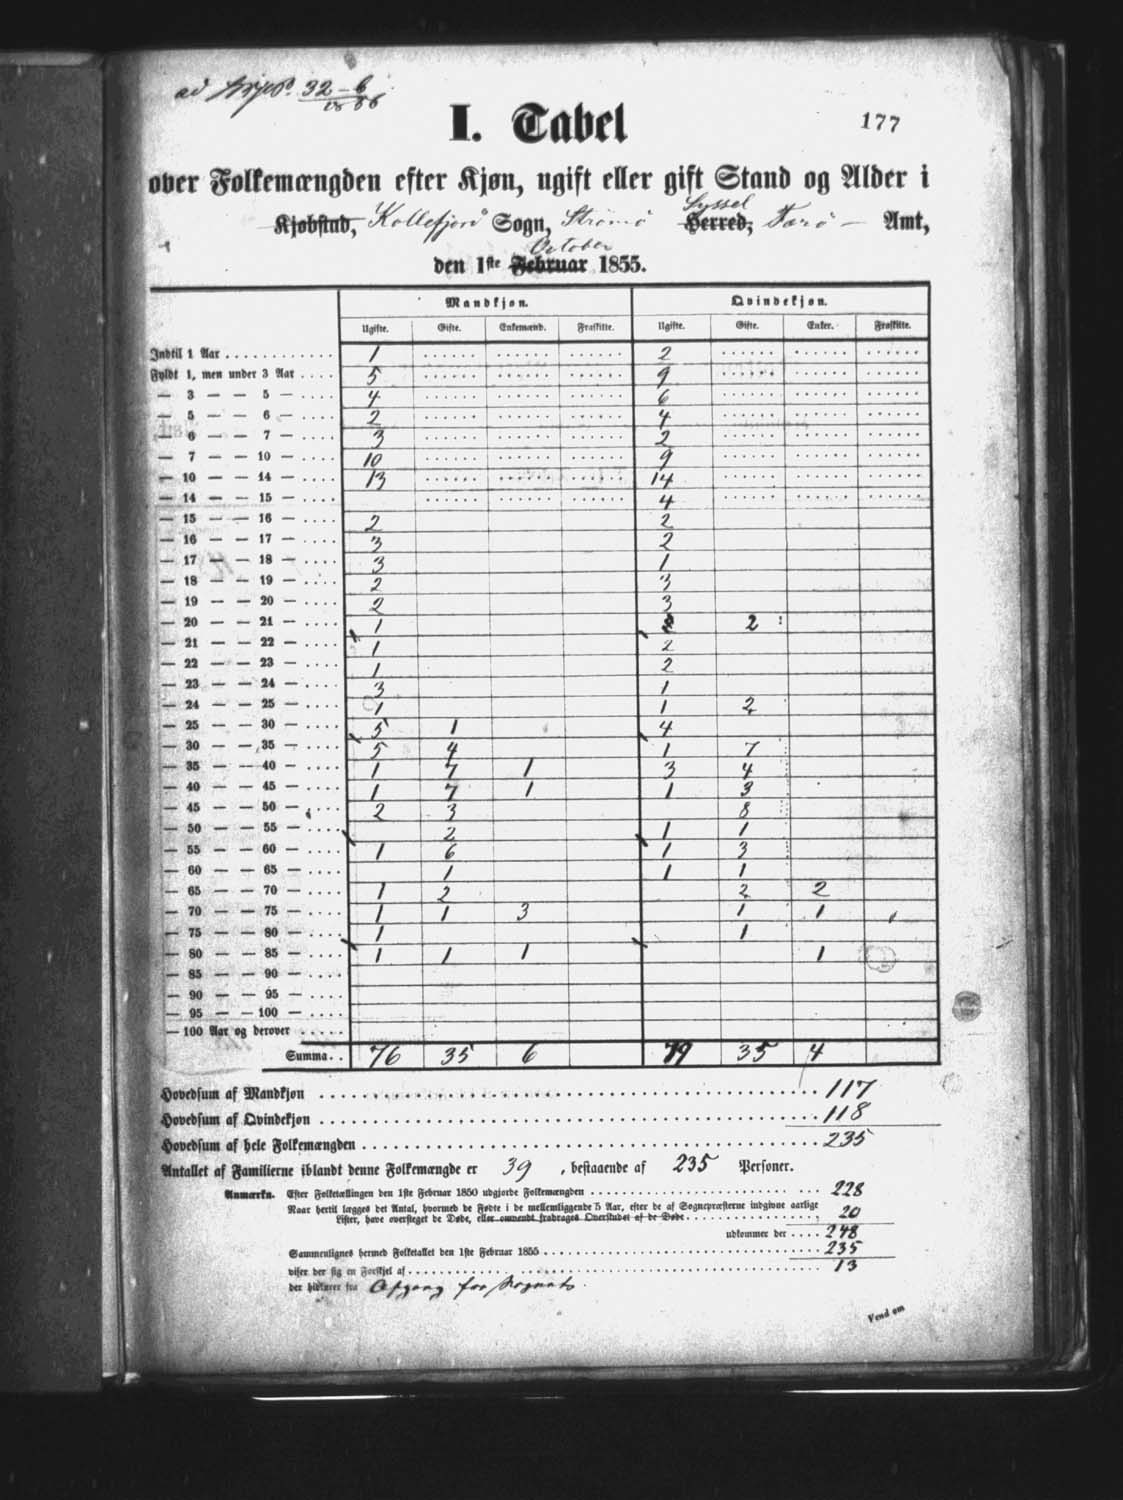 ad 32-6
1856
I. Tabel
177
over Folkemængden efter Kjøn, ugift eller gift Stand og Alder i
Kjøbstad, Kollefjord Sogn, Strømø Herred, Syssel Færø Amt,
den 1ste Februar October 1855.
Mandkjøn. Qvindekjøn.
Ugifte. Gifte. Enkemænd. Fraskilte. Ugifte. Gifte. Enker. Fraskilte.
Indtil 1 Aar 1 2
Fyldt 1, men under 3 Aar 5 9
— 3 — — 5 — 4 6
— 5 — — 6 — 2 4
— 6 — — 7 — 3 2
— 7 — — 10 — 10 9
— 10 — — 14 — 13 14
— 14 — — 15 — 4
— 15 — — 16 — 2 2
— 16 — — 17 — 3 2
— 17 — — 18 — 3 1
— 18 — — 19 — 2 3
— 19 — — 20 — 2 3
— 20 — — 21 — 1 2
— 21 — — 22 — 1 2
— 22 — — 23 — 1 2
— 23 — — 24 — 3 1
— 24 — — 25 — 1 1 2
— 25 — — 30 — 5 1 4
— 30 — — 35 — 5 4 1 7
— 35 — — 40 — 1 7 1 3 4
— 40 — — 45 — 1 7 1 1 3
— 45 — — 50 — 2 3 8
— 50 — — 55 — 2 1 1
— 55 — — 60 — 1 6 1 3
— 60 — — 65 — 1 1 1
— 65 — — 70 — 1 2 2 2
— 70 — — 75 — 1 1 3 1 1
— 75 — — 80 — 1 1
— 80 — — 85 — 1 1 1 1
— 85 — — 90 —
— 90 — — 95 —
— 95 — — 100 —
— 100 Aar og derover
Summa. 76 35 6 79 35 4
Hovedsum af Mandkjøn 117
Hovedsum af Qvindekjøn 118
Hovedsum af hele Folkemængden 235
Antallet af Familierne iblandt denne Folkemængde er 39, bestaaende af 235 Personer.
Anmærkn. Efter Folketællingen den 1ste Februar 1850 udgjorde Folkemængden 228
Naar hertil lægges det Antal, hvormed de Fødte i de mellemliggende 5 Aar, efter de af Sognepræsterne indgivne aarlige
Lister, have oversteget de Døde, eller omvendt fradrages Overskudet af de Døde 20
udkommer der 248
Sammenlignes hermed Folketallet den 1ste Februar 1855 235
viser der sig en Forskjel af 13
der hidrører fra Afgang fra Sognet
Vend om